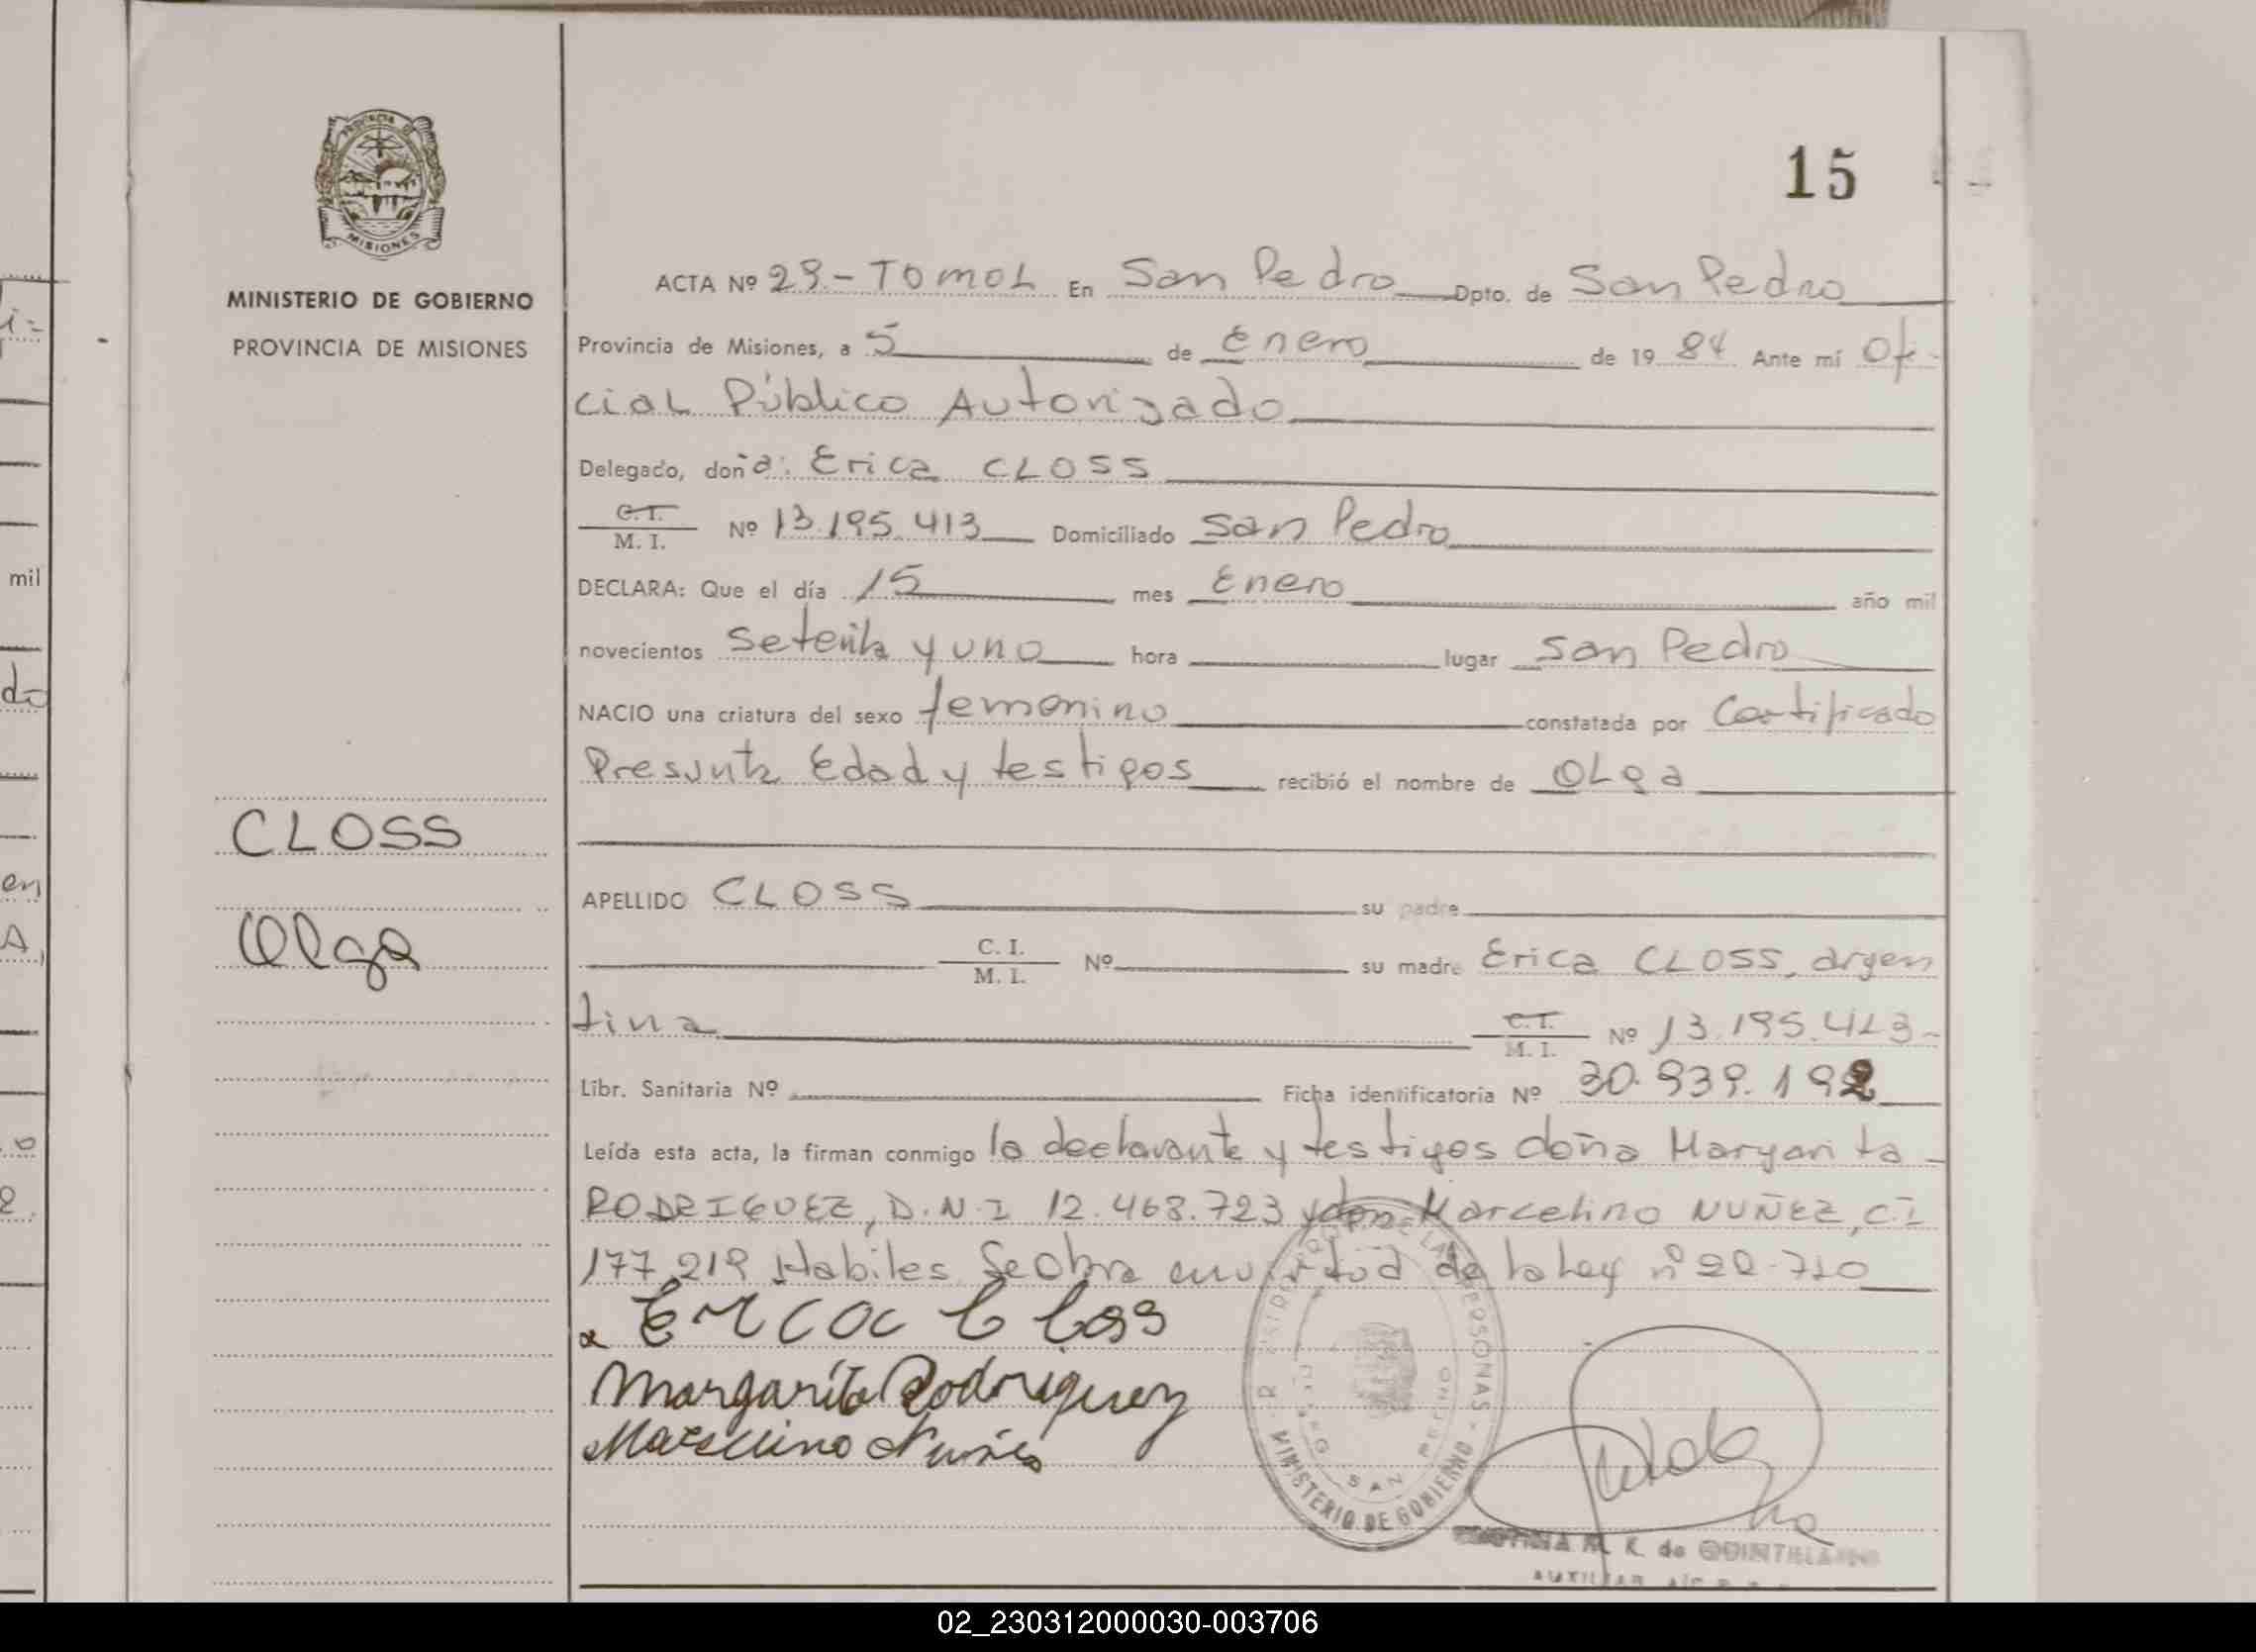 15
PROVINCIA DE
MISIONES
MINISTERIO DE GOBIERNO
PROVINCIA DE MISIONES
CLOSS
Olga
ACTA Nº 29.- TOMOL En San Pedro Dpto. de San Pedro
Provincia de Misiones, a 5 de Enero de 19 84 Ante mí Ofi-
cial Público Autorizado
Delegado, doña: Erica CLOSS
C.I. M. I. Nº 13.195.413 Domiciliado San Pedro
DECLARA: Que el día 15 mes Enero año mil
novecientos setenta y uno hora lugar San Pedro
NACIO una criatura del sexo femenino constatada por Certificado
Presunta Edad y testigos recibió el nombre de Olga
APELLIDO CLOSS su padre
C. I. M. I. Nº su madre Erica CLOSS, argen
tina C.I. M. I. Nº 13.195.413-
Libr. Sanitaria Nº Ficha identificatoria Nº 30.939.192
Leída esta acta, la firman conmigo la declarante y testigos doña Margarita
RODRIGUEZ, D.N.I 12.468.723 y don Marcelino NUÑEZ, C.I
177.219 Habiles Se obra en virtud de la Ley nº 20.710
Erica Closs
Margarita Rodriguez
Marcelino Nuñes
PERSONAS - MINISTERIO DE GOBIERNO
SAN PEDRO
M. K. de QUINTELA
AUXILIAR
mil
do
en
A,
02_230312000030-003706